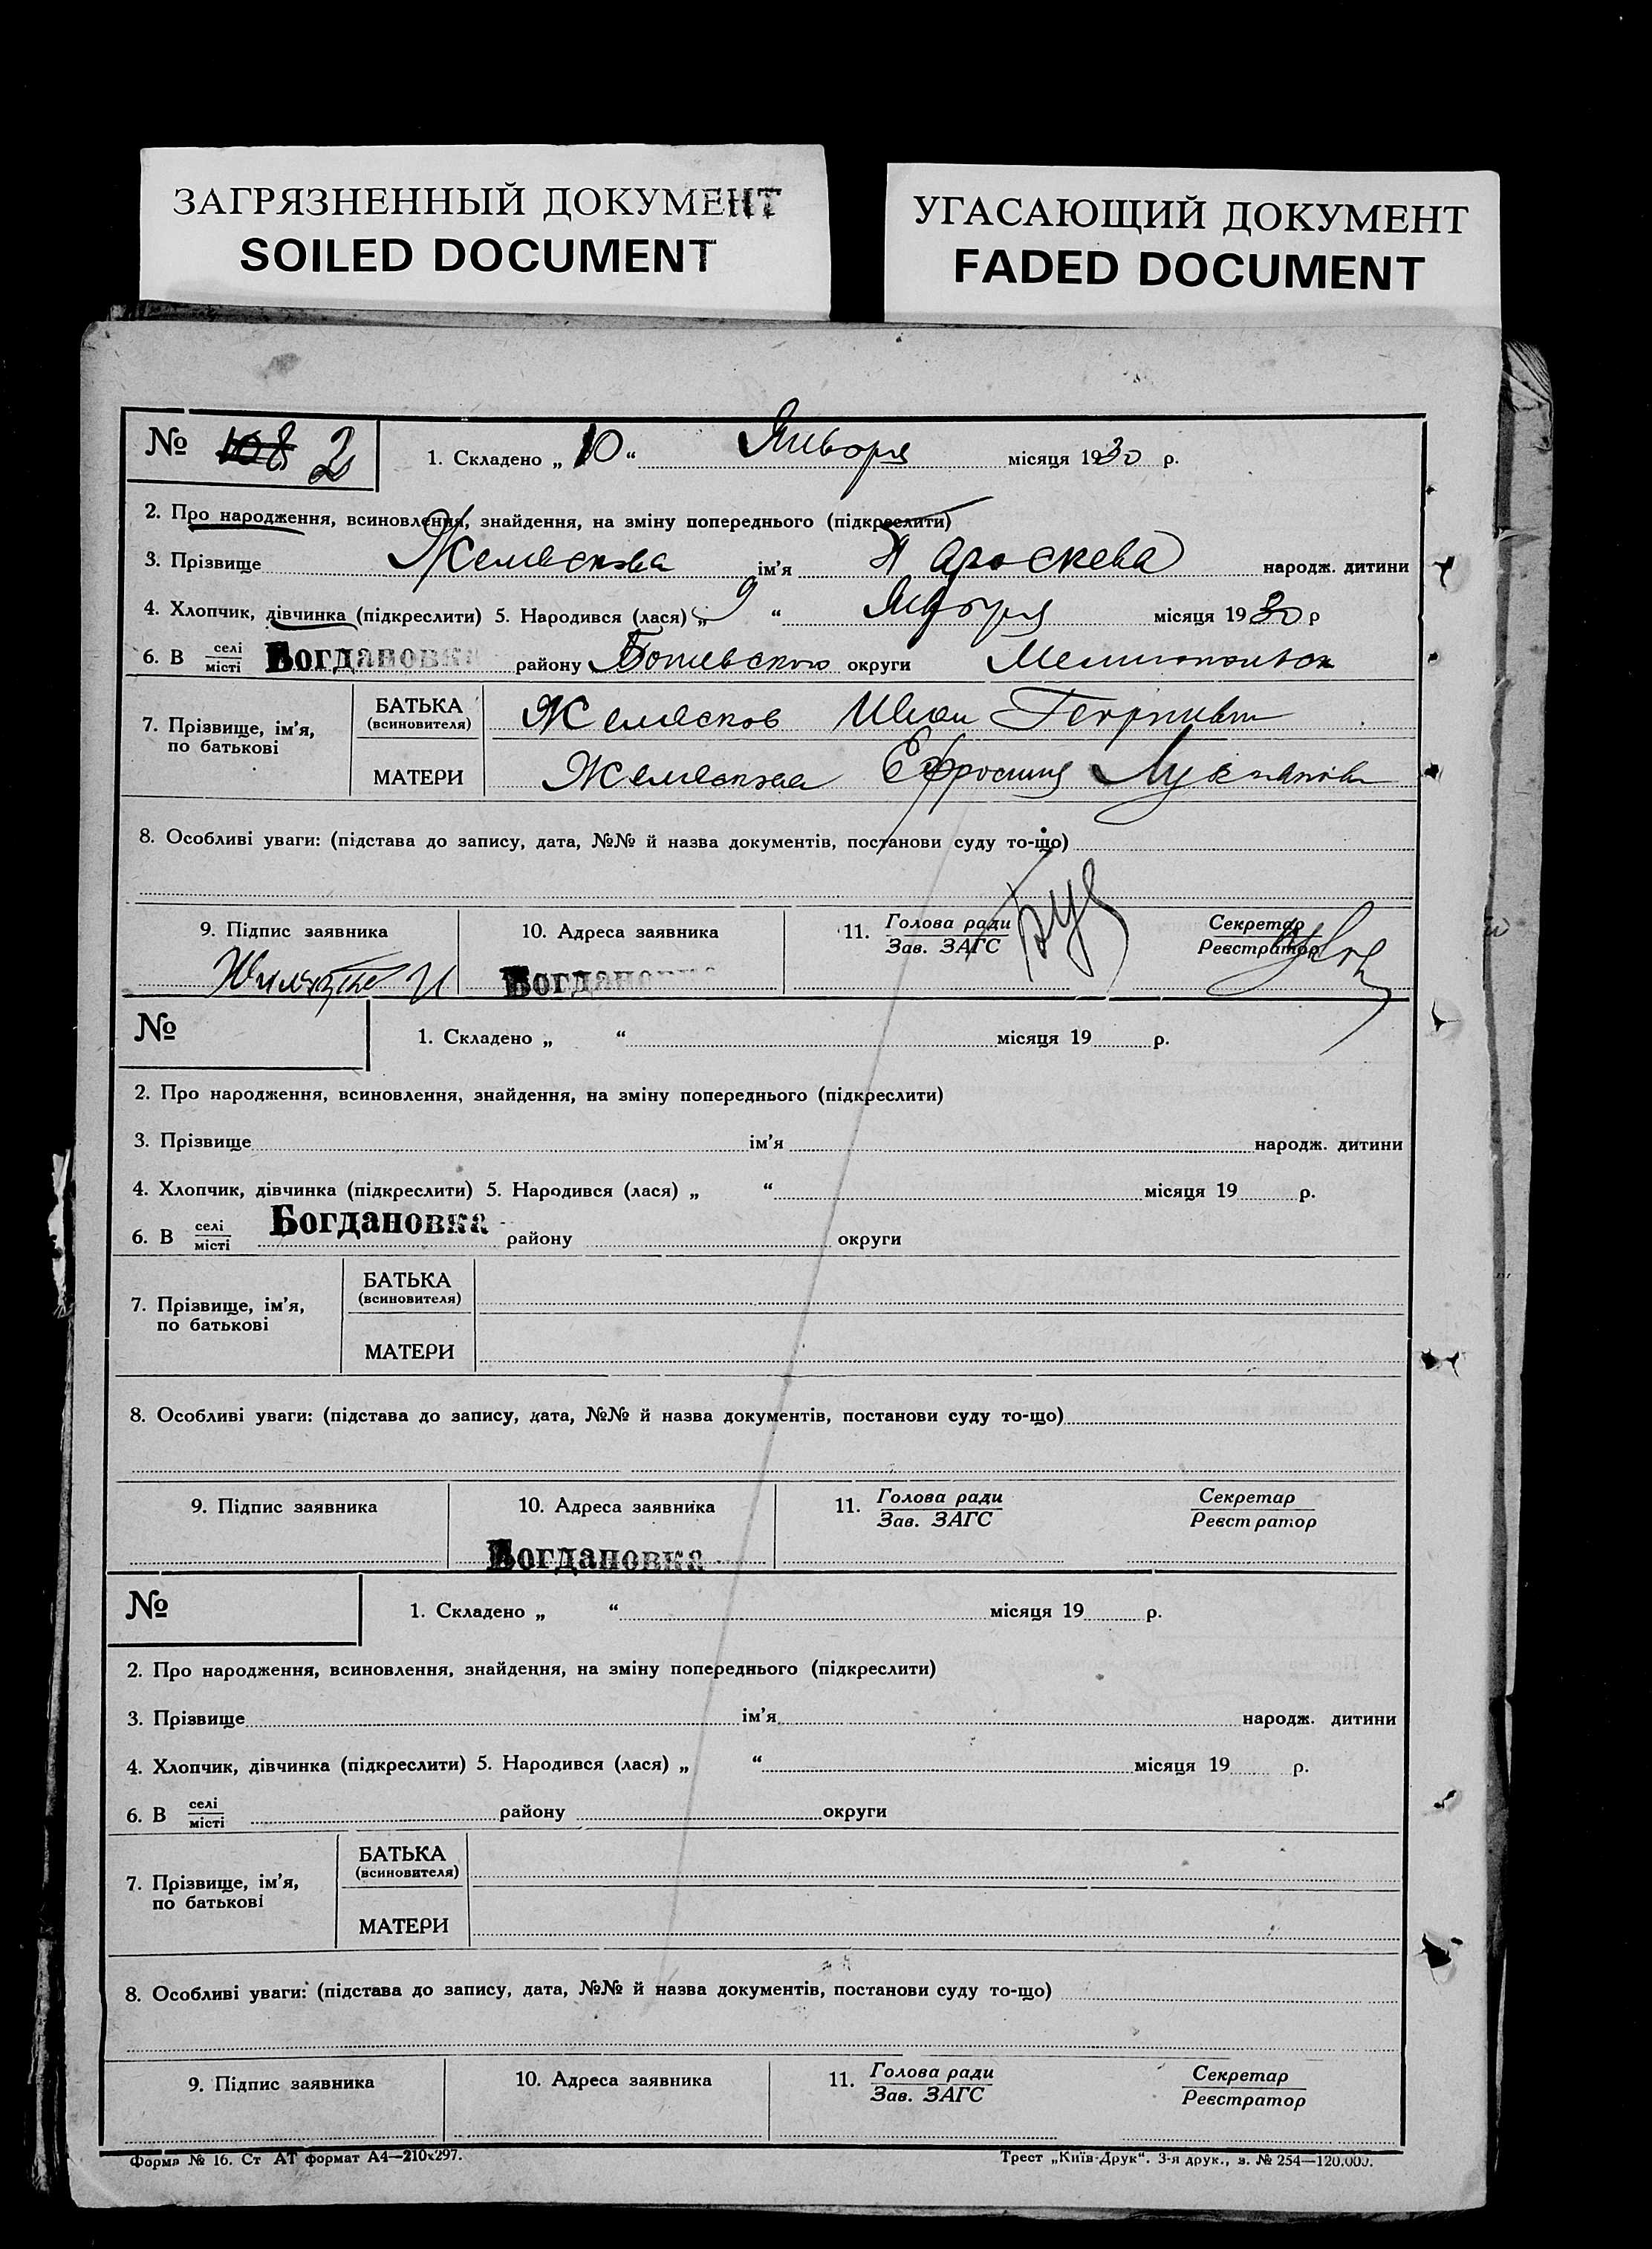 ЗАГРЯЗНЕННЫЙ ДОКУМЕНТ
SOILED DOCUMENT
УГАСАЮЩИЙ ДОКУМЕНТ
FADED DOCUMENT
№ 108 2
1. Складено „ 10 “ Января місяця 1930 р.
2. Про народження, всиновлення, знайдення, на зміну попереднього (підкреслити)
3. Прізвище Желяскова ім’я Параскева народж. дитини
4. Хлопчик, дівчинка (підкреслити) 5. Народився (лася) „ 9 “ Января місяця 1930 р
6. В селі/місті Богдановка району Ботиевского округи
7. Прізвище, ім’я, по батькові
БАТЬКА (всиновителя) Желясков Иван Георгиевич
МАТЕРИ Желяскова Ефросиния
8. Особливі уваги: (підстава до запису, дата, №№ й назва документів, постанови суду то-що)
9. Підпис заявника
10. Адреса заявника Богдановка
11. Голова ради/Зав. ЗАГС
Секретар/Реєстратор
№
1. Складено „ “ місяця 19 р.
2. Про народження, всиновлення, знайдення, на зміну попереднього (підкреслити)
3. Прізвище ім’я народж. дитини
4. Хлопчик, дівчинка (підкреслити) 5. Народився (лася) „ “ місяця 19 р.
6. В селі/місті Богдановка району округи
7. Прізвище, ім’я, по батькові
БАТЬКА (всиновителя)
МАТЕРИ
8. Особливі уваги: (підстава до запису, дата, №№ й назва документів, постанови суду то-що)
9. Підпис заявника
10. Адреса заявника Богдановка
11. Голова ради/Зав. ЗАГС
Секретар/Реєстратор
№
1. Складено „ “ місяця 19 р.
2. Про народження, всиновлення, знайдення, на зміну попереднього (підкреслити)
3. Прізвище ім’я народж. дитини
4. Хлопчик, дівчинка (підкреслити) 5. Народився (лася) „ “ місяця 19 р.
6. В селі/місті району округи
7. Прізвище, ім’я, по батькові
БАТЬКА (всиновителя)
МАТЕРИ
8. Особливі уваги: (підстава до запису, дата, №№ й назва документів, постанови суду то-що)
9. Підпис заявника
10. Адреса заявника
11. Голова ради/Зав. ЗАГС
Секретар/Реєстратор
Форма № 16. Ст АТ формат А4—210х297.
Трест „Київ-Друк“. 3-я друк., з. № 254—120.000.